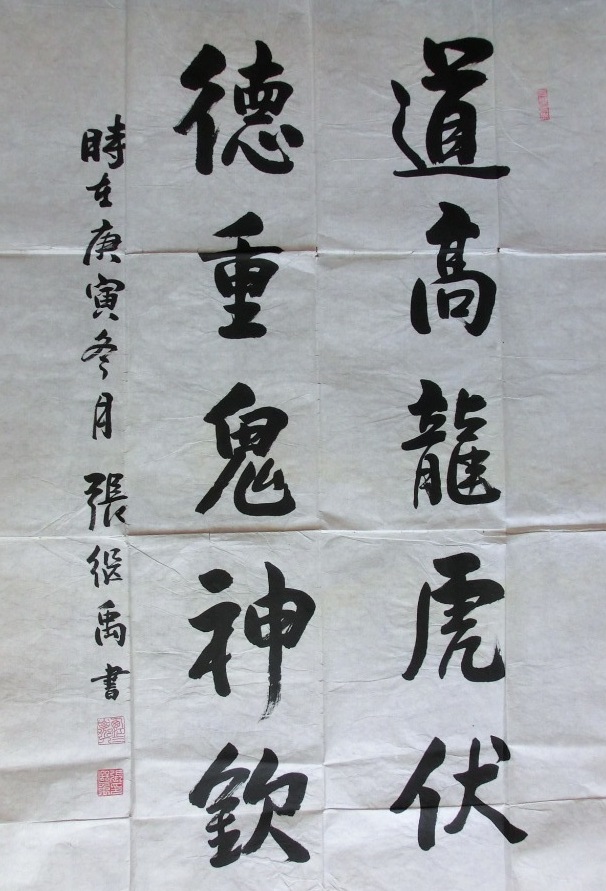 道高龍虎伏
德重鬼神欽
時在庚寅冬月 張继禹書